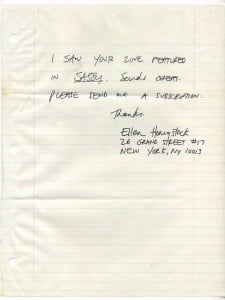 I SAW YOUR ZINE FEATURED
IN SASSY. Sounds GREAT.
PLEASE SEND ME A SUBSCRIPTION.
Thanks
Ellen
26 GRAND STREET #17
NEW YORK, NY 10013